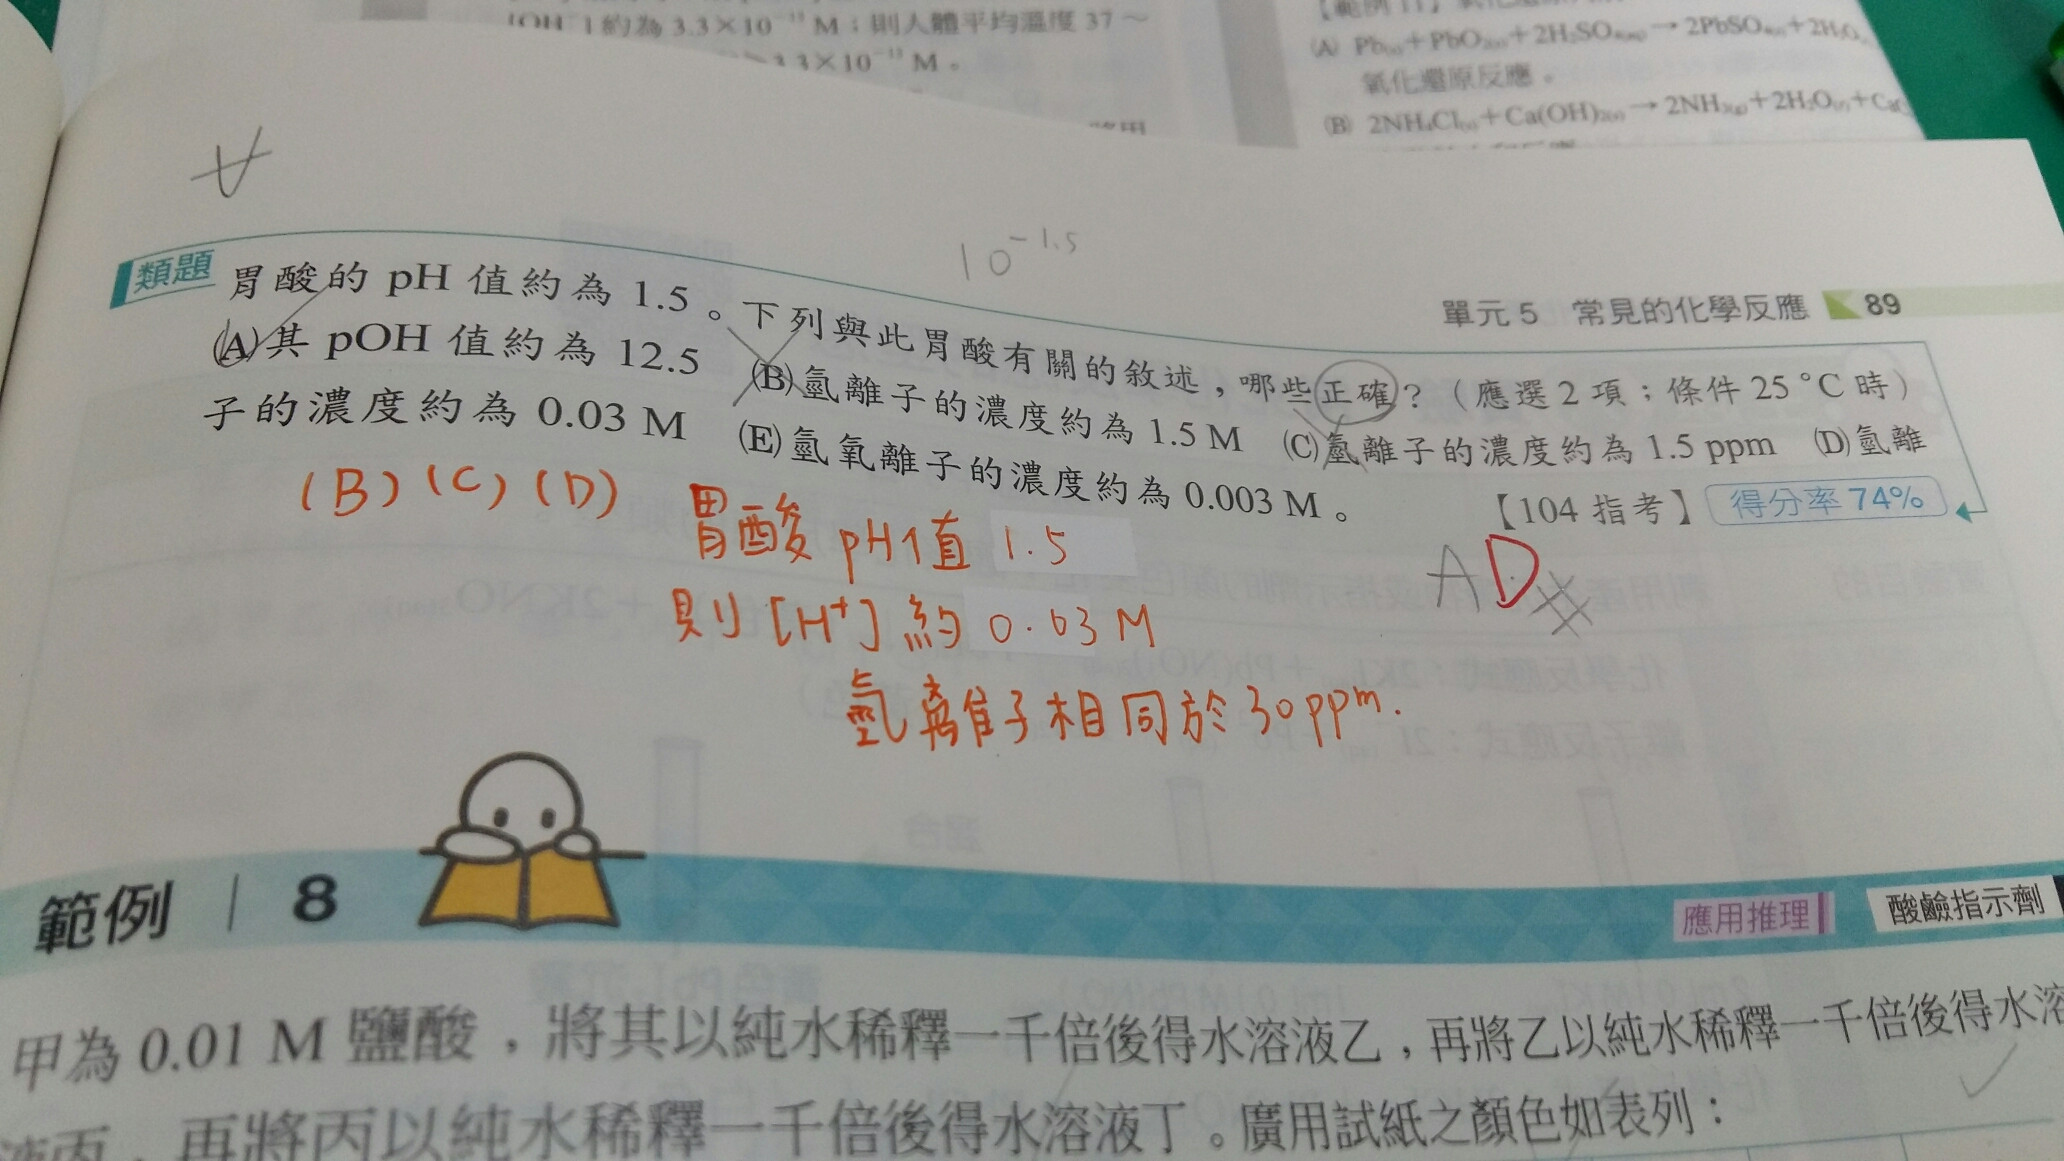 [OH⁻]約為 3.3×10⁻¹³ M;則人體平均溫度 37~
3.3×10⁻¹³ M。
(A) Pb(s)+PbO₂(s)+2H₂SO₄(aq)→2PbSO₄(s)+2H₂O
氧化還原反應。
(B) 2NH₄Cl(s)+Ca(OH)₂(s)→2NH₃(g)+2H₂O(l)+Ca
10^-1.5
單元 5 常見的化學反應 89
類題 胃酸的 pH 值約為 1.5。下列與此胃酸有關的敘述,哪些正確?(應選 2 項;條件 25 °C 時)
(A)其 pOH 值約為 12.5 (B)氫離子的濃度約為 1.5 M (C)氫離子的濃度約為 1.5 ppm (D)氫離
子的濃度約為 0.03 M (E)氫氧離子的濃度約為 0.003 M。 【104 指考】 得分率 74%
(B)(C)(D) 胃酸 pH值 1.5
則 [H⁺] 約 0.03 M
氫離子相同於30ppm.
AD
範例 8
應用推理 酸鹼指示劑
甲為 0.01 M 鹽酸,將其以純水稀釋一千倍後得水溶液乙,再將乙以純水稀釋一千倍後得水溶
液丙,再將丙以純水稀釋一千倍後得水溶液丁。廣用試紙之顏色如表列: